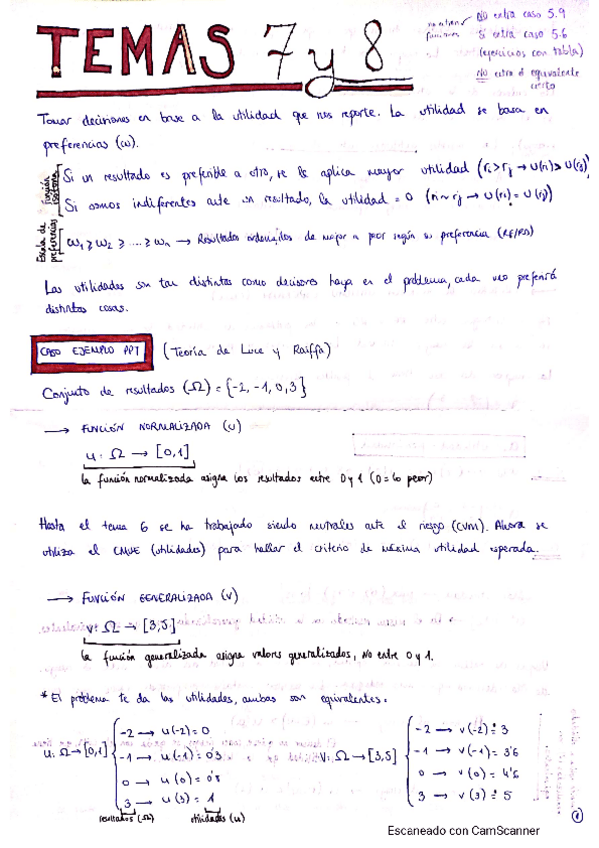 TEMAS 7 y 8
NO entra caso 5.9
Sí entra caso 5.6
(ejercicios con tabla)
NO entra el equivalente cierto
Tomar decisiones en base a la utilidad que nos reporte. La utilidad se basa en
preferencias (ω).
Función
Si un resultado es preferible a otro, se le aplica mayor utilidad (ri > rj → U(ri) > U(rj)
Si somos indiferentes ante un resultado, la utilidad = 0 (ri ~ rj → U(ri) = U(rj))
Escala de preferencias
ω1 ≥ ω2 ≥ .... ≥ ωn → Resultados ordenados de mejor a peor según su preferencia
Las utilidades son tan distintas como decisores haya en el problema, cada uno preferirá
distintas cosas.
CASO EJEMPLO PPT (Teoría de Luce y Raiffa)
Conjunto de resultados (Ω) = {-2, -1, 0, 3}
→ FUNCIÓN NORMALIZADA (u)
u: Ω → [0,1]
la función normalizada asigna los resultados entre 0 y 1 (0 = lo peor)
Hasta el tema 6 se ha trabajado siendo neutrales ante el riesgo (CVM). Ahora se
utiliza el CMUE (utilidades) para hallar el criterio de máxima utilidad esperada.
→ FUNCIÓN GENERALIZADA (v)
v: Ω → [3,5]
la función generalizada asigna valores generalizados, no entre 0 y 1.
* El problema te da las utilidades, ambas son equivalentes:
u: Ω → [0,1]
-2 → u(-2) = 0
-1 → u(-1) = 0'3
0 → u(0) = 0'8
3 → u(3) = 1
resultados (Ω) utilidades (u)
V: Ω → [3,5]
-2 → v(-2) = 3
-1 → v(-1) = 3'6
0 → v(0) = 4'5
3 → v(3) = 5
1
Escaneado con CamScanner